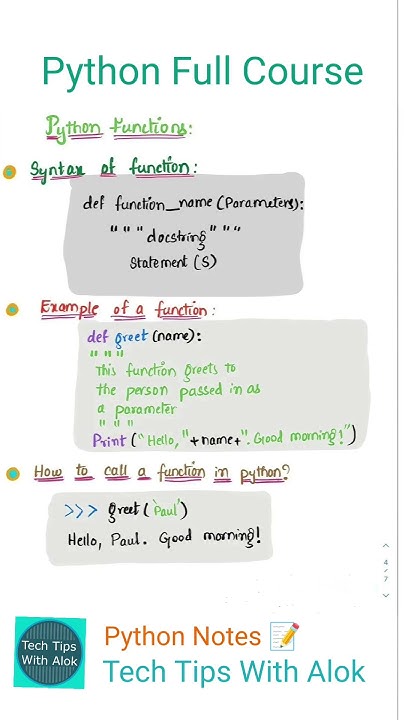 Python Full Course
Python Functions:
Syntax of function:
def function_name (Parameters):
" " " docstring " " "
Statement (S)
Example of a function:
def greet (name):
" " "
This function greets to
the person passed in as
a parameter
" " "
Print ("Hello, "+name+". Good morning!")
How to call a function in python?
>>> greet ('Paul')
Hello, Paul. Good morning!
4
/
7
Tech Tips
With Alok
Python Notes 📝
Tech Tips With Alok